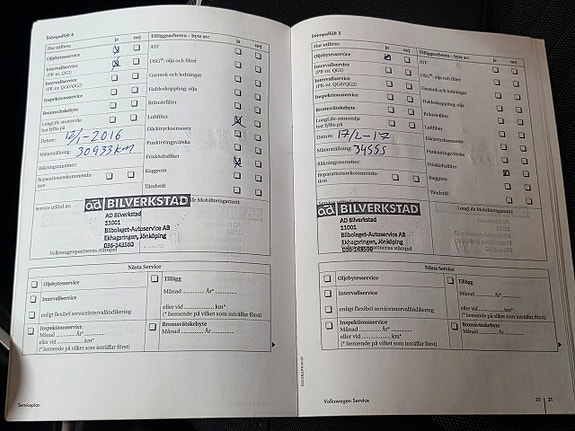 Stämpelfält 4
Har utförts: ja nej
Oljebytesservice
Intervallservice
(PR-nr. QG1)
Intervallservice
(PR-nr. QG0/QG2)
Inspektionsservice
Bromsvätskebyte
LongLife-Motorolja
har fyllts på
Datum: 12/1-2016
Mätarställning: 30933 km
Räkningsnummer:
Reparationsrekommenda-
tion
Tilläggsarbeten - byte av: ja nej
ATF
DSG®: olja och filter
Gastank och ledningar
Haldexkoppling: olja
Bränslefilter
Luftfilter
Däcktrycksensorer
Punkteringsvätska
Friskluftsfilter
Kuggrem
Tändstift
Service utförd av:
LongLife Mobilitetsgaranti
ad BILVERKSTAD
AD Bilverkstad
21001
Bilbolaget-Autoservice AB
Ekhagsringen, Jönköping
Volkswagenpartnerns stämpel
Nästa Service
Oljebytesservice
Intervallservice
enligt flexibel serviceintervallindikering
Inspektionsservice
Månad År*
eller vid km*
(* beroende på vilket som inträffar först)
Tillägg
Månad År*
eller vid km*
(* beroende på vilket som inträffar först)
Bromsvätskebyte
Månad År
Serviceplan
Stämpelfält 5
Har utförts: ja nej
Oljebytesservice
Intervallservice
(PR-nr. QG1)
Intervallservice
(PR-nr. QG0/QG2)
Inspektionsservice
Bromsvätskebyte
LongLife-Motorolja
har fyllts på
Datum: 17/2-17
Mätarställning: 34555
Räkningsnummer:
Reparationsrekommenda-
tion
Tilläggsarbeten - byte av: ja nej
ATF
DSG®: olja och filter
Gastank och ledningar
Haldexkoppling: olja
Bränslefilter
Luftfilter
Däcktrycksensorer
Punkteringsvätska
Friskluftsfilter
Kuggrem
Tändstift
Service utförd av:
LongLife Mobilitetsgaranti
ad BILVERKSTAD
AD Bilverkstad
21001
Bilbolaget-Autoservice AB
Ekhagsringen, Jönköping
Volkswagenpartnerns stämpel
Nästa Service
Oljebytesservice
Intervallservice
enligt flexibel serviceintervallindikering
Inspektionsservice
Månad År*
eller vid km*
(* beroende på vilket som inträffar först)
Tillägg
Månad År*
eller vid km*
(* beroende på vilket som inträffar först)
Bromsvätskebyte
Månad År
Volkswagen Service
20 21